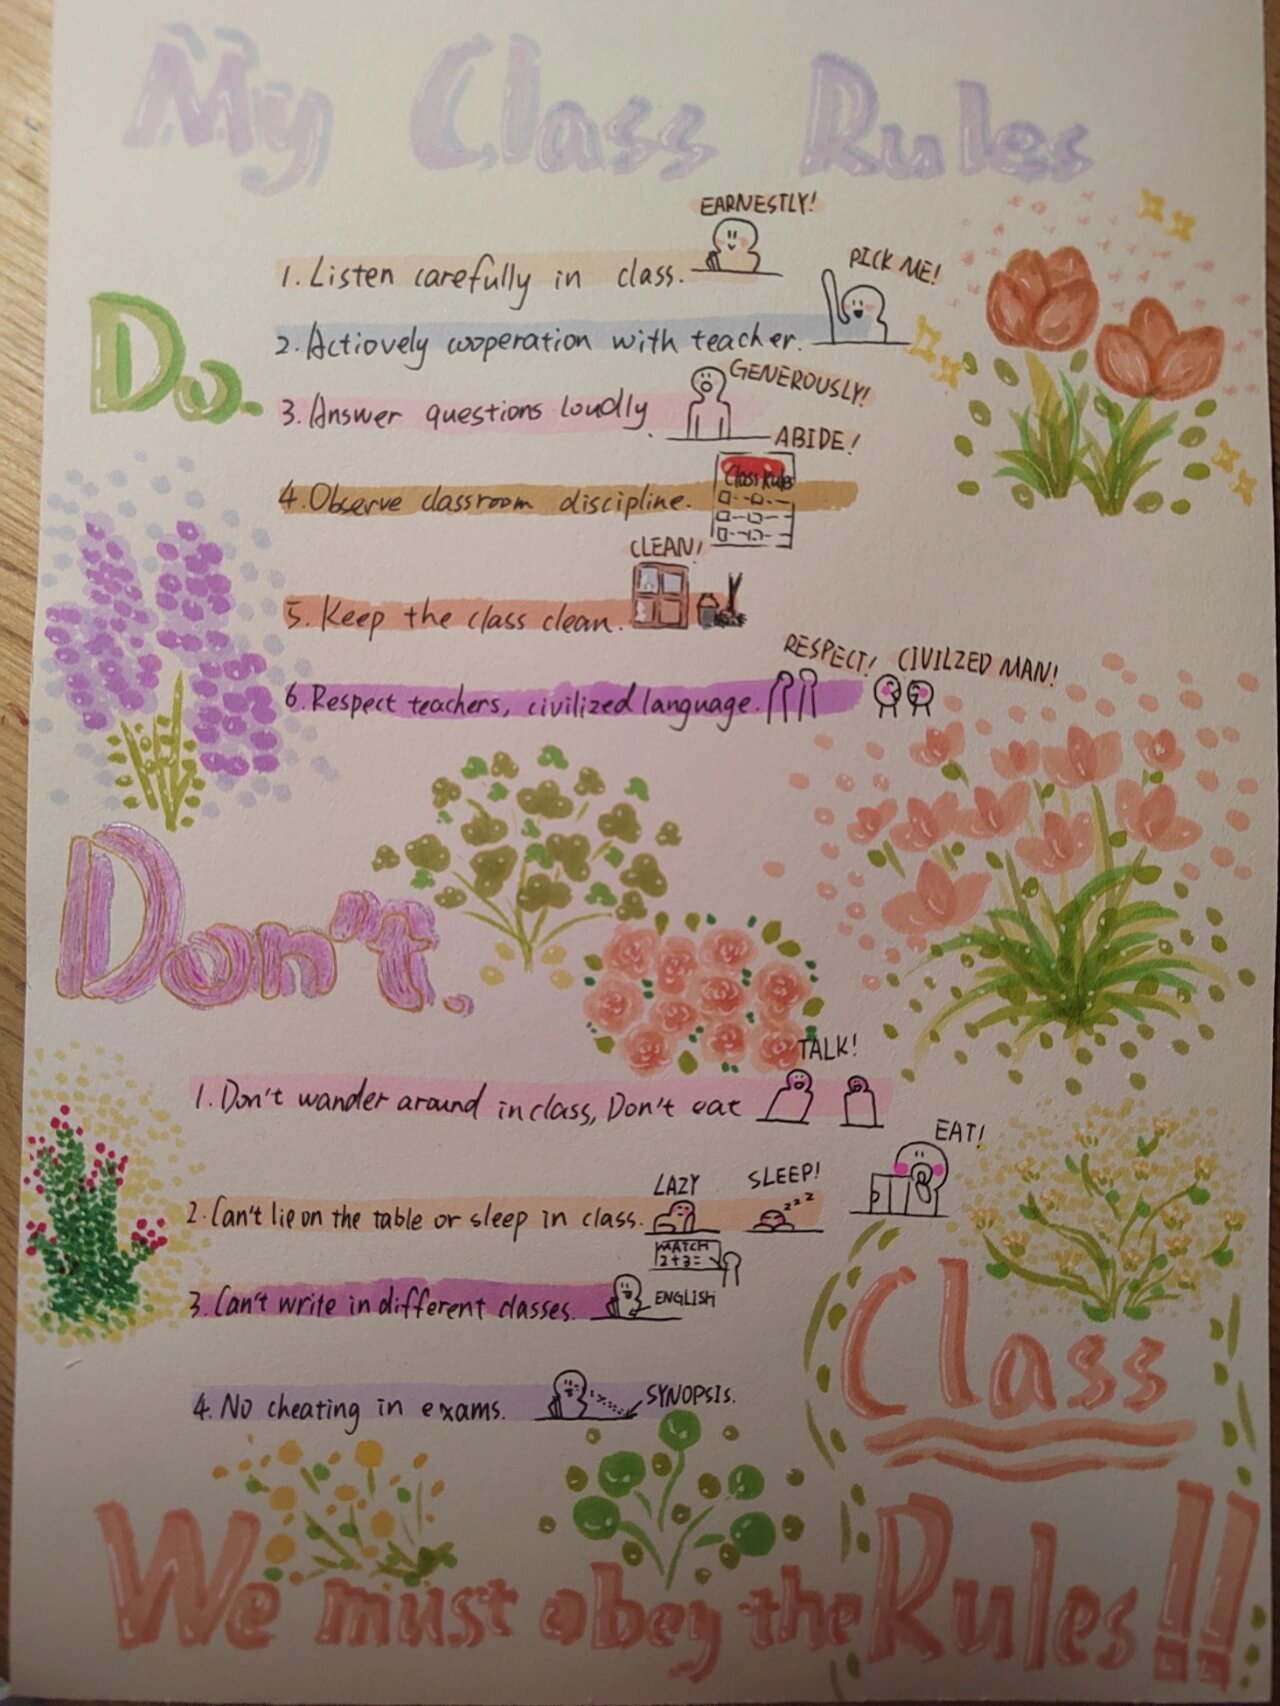 My Class Rules
EARNESTLY!
1. Listen carefully in class.
PICK ME!
Do.
2. Actiovely cooperation with teacher.
GENEROUSLY!
3. Answer questions loudly.
ABIDE!
Class Rules
4. Observe classroom discipline.
CLEAN!
5. Keep the class clean.
RESPECT! CIVILZED MAN!
6. Respect teachers, civilized language.
Don't.
TALK!
1. Don't wander around in class, Don't eat
EAT!
LAZY SLEEP!
zzz
2. Can't lie on the table or sleep in class.
MATCH
2+3=
3. Can't write in different classes.
ENGLISH
4. No cheating in exams.
SYNOPSIS.
Class
We must obey the Rules!!